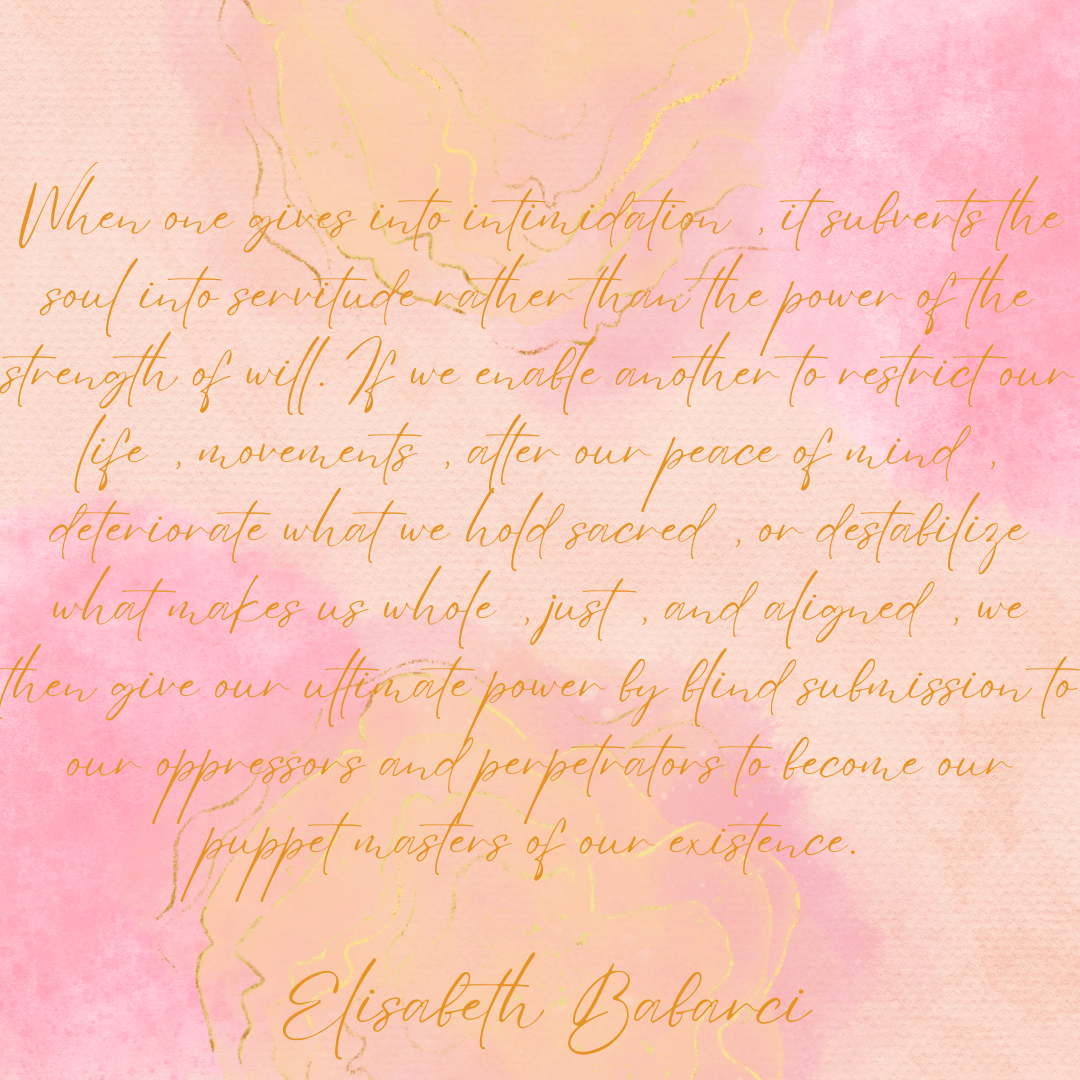 When one gives into intimidation , it subverts the
soul into servitude rather than the power of the
strength of will. If we enable another to restrict our
life , movements , alter our peace of mind ,
deteriorate what we hold sacred , or destabilize
what makes us whole , just , and aligned , we
then give our ultimate power by blind submission to
our oppressors and perpetrators to become our
puppet masters of our existence.
Elisabeth Babarci